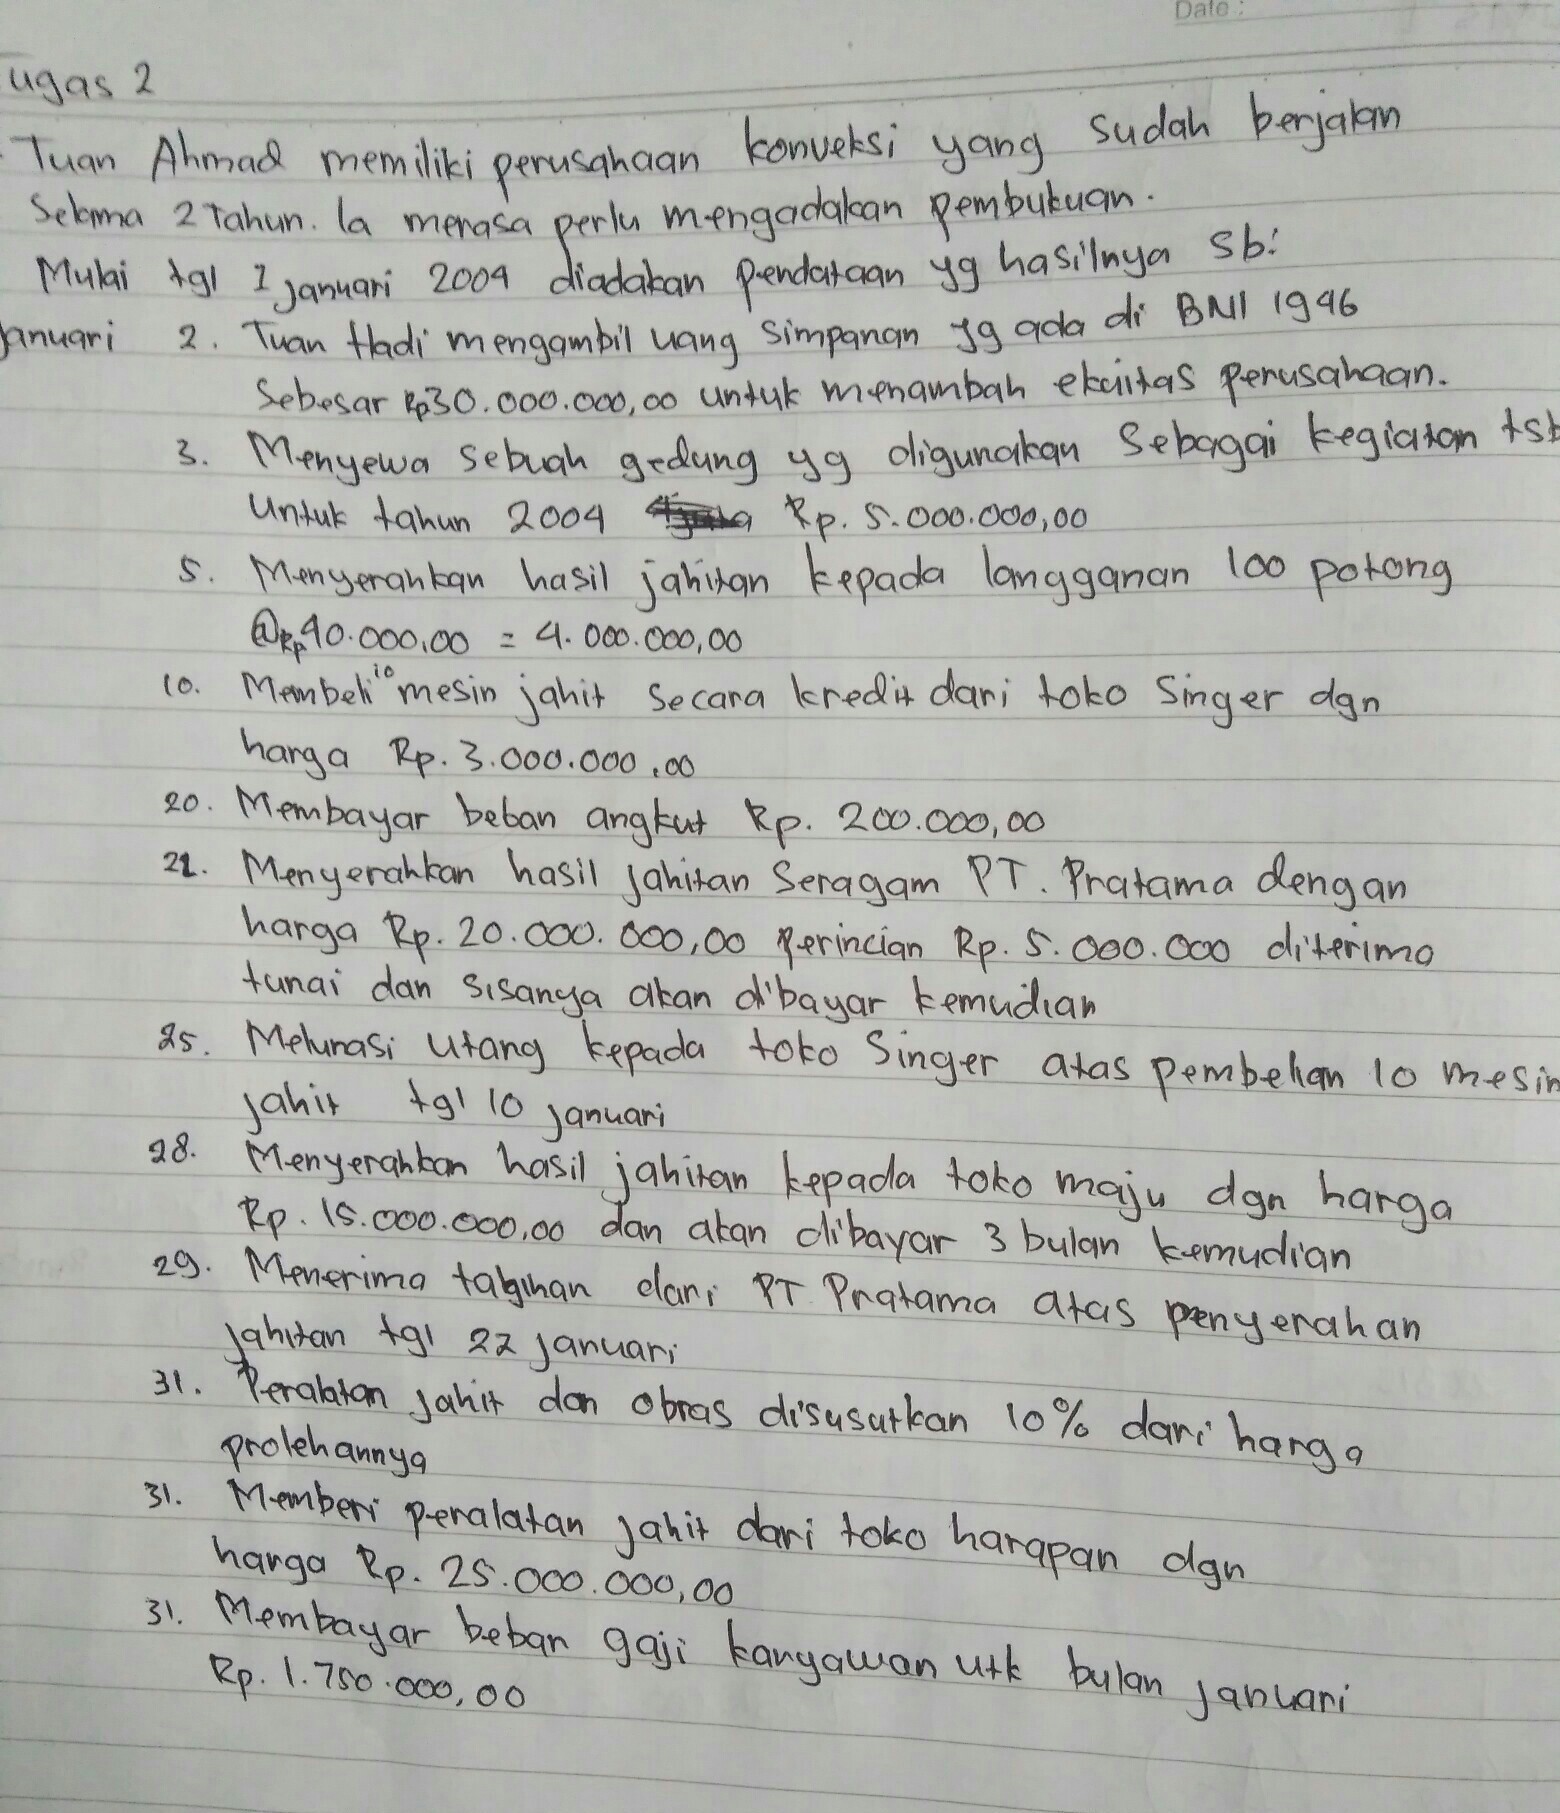 Date :
ugas 2
Tuan Ahmad memiliki perusahaan konveksi yang sudah berjalan
Selama 2 Tahun. Ia merasa perlu mengadakan pembukuan.
Mulai tgl 1 januari 2004 diadakan pendataan yg hasilnya sb:
Januari 2. Tuan Hadi mengambil uang simpanan yg ada di BNI 1946
Sebesar Rp30.000.000,00 untuk menambah ekuitas perusahaan.
3. Menyewa sebuah gedung yg digunakan Sebagai kegiatan tsb
Untuk tahun 2004 Rp. 5.000.000,00
5. Menyerahkan hasil jahitan kepada langganan 100 potong
@Rp40.000,00 = 4.000.000,00
10. Membeli 10 mesin jahit secara kredit dari toko Singer dgn
harga Rp. 3.000.000,00
20. Membayar beban angkut Rp. 200.000,00
22. Menyerahkan hasil jahitan Seragam PT. Pratama dengan
harga Rp. 20.000.000,00 perincian Rp. 5.000.000 diterima
tunai dan sisanya akan dibayar kemudian
25. Melunasi utang kepada toko Singer atas pembelian 10 mesin
jahit tgl 10 januari
28. Menyerahkan hasil jahitan kepada toko maju dgn harga
Rp. 15.000.000,00 dan akan dibayar 3 bulan kemudian
29. Menerima tagihan dari PT Pratama atas penyerahan
jahitan tgl 22 januari
31. Peralatan jahit dan obras disusutkan 10% dari harga
prolehannya
31. Memberi peralatan jahit dari toko harapan dgn
harga Rp. 25.000.000,00
31. Membayar beban gaji karyawan utk bulan januari
Rp. 1.750.000,00